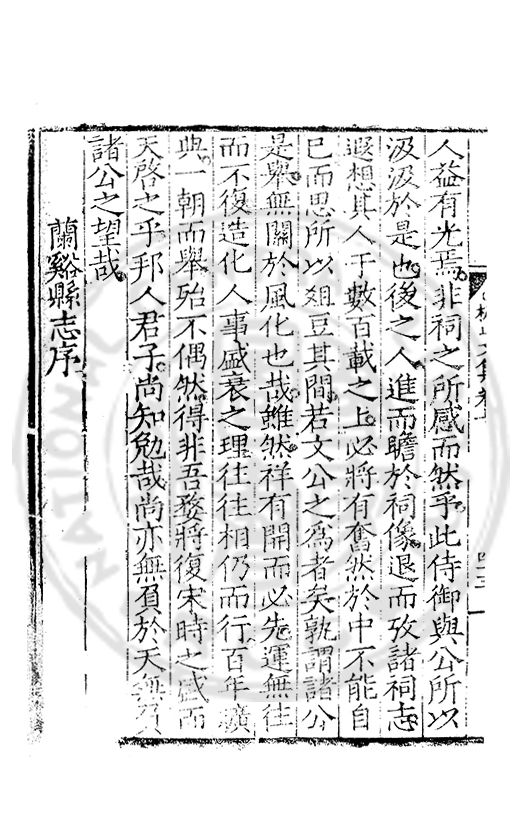 人益有光焉非祠之所感而然乎此侍御與公所以
汲汲於是也後之人進而瞻於祠像退而攷諸祠志
遐想其人于數百載之上必將有奮然於中不能自
已而思所以俎豆其間若文公之爲者矣孰謂諸公
是舉無關於風化也哉雖然祥有開而必先運無往
而不復造化人事盛衰之理往往相仍而行百年曠
典一朝而舉殆不偶然得非吾婺將復宋時之盛而
天啓之乎邦人君子尚知勉哉尚亦無負於天無負
諸公之望哉
蘭谿縣志序
NATIONAL